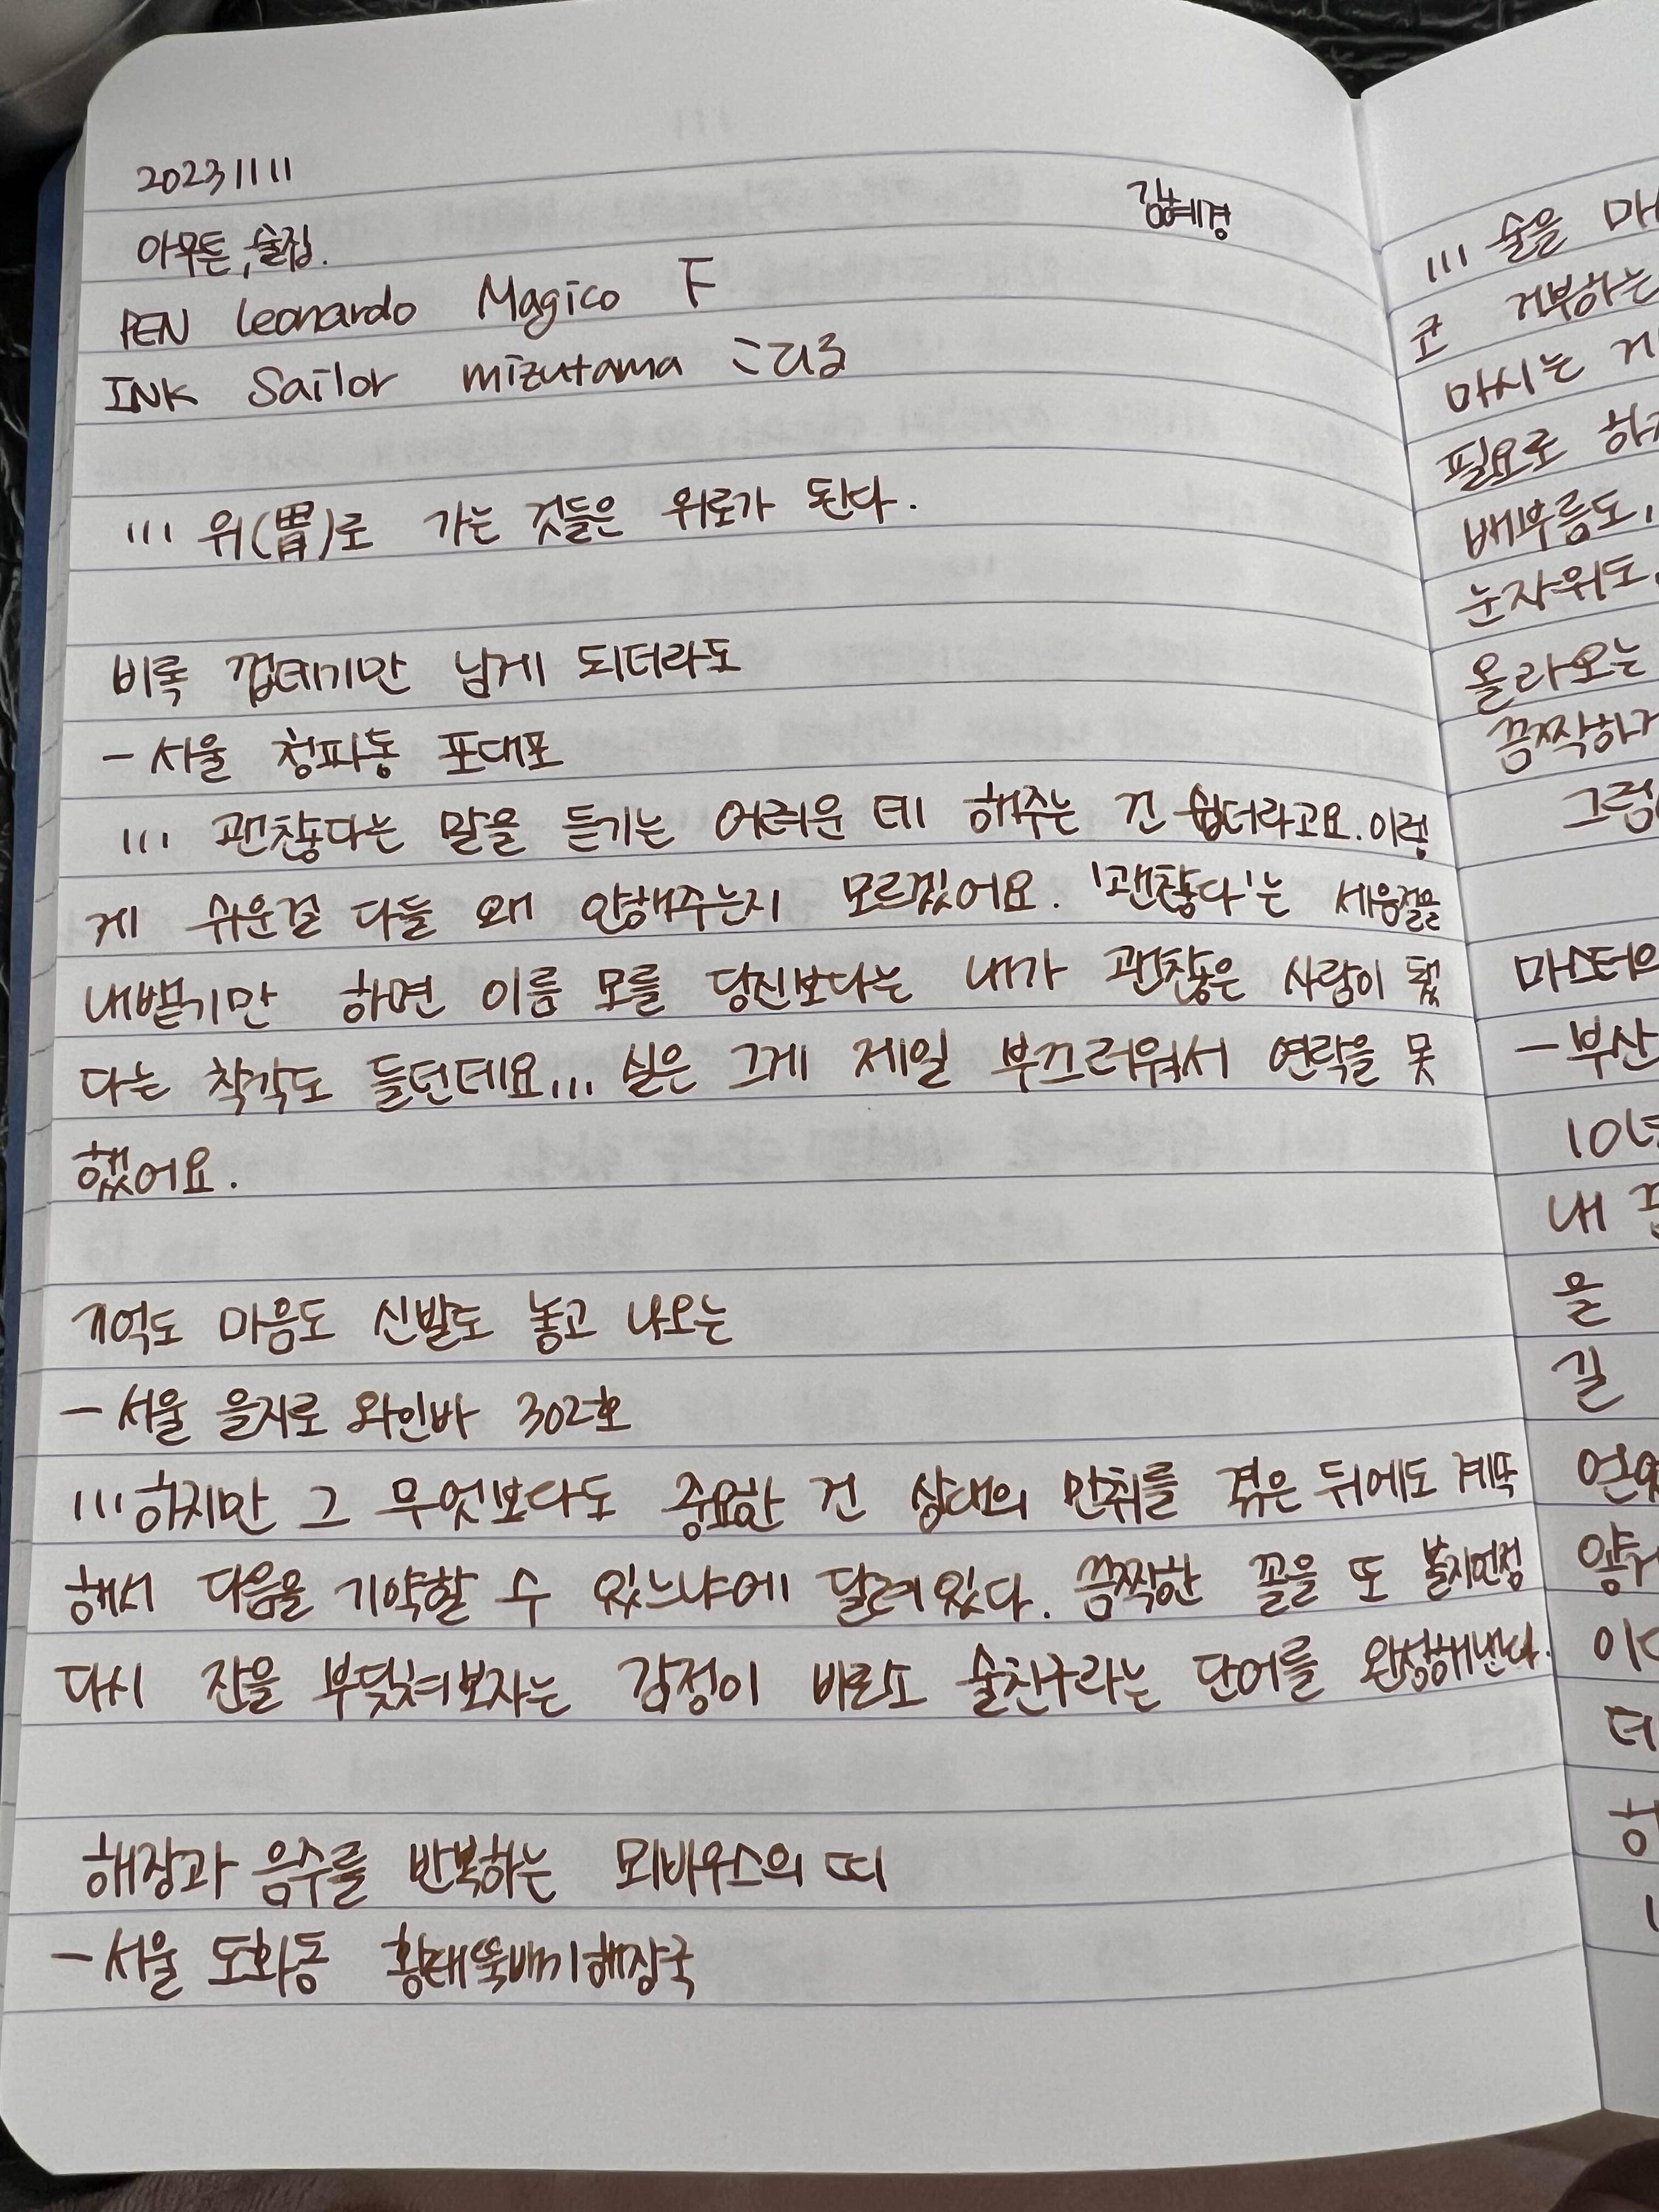 20231111
김혜경
아무튼, 술집.
PEN Leonardo Magico F
INK Sailor mizutama こはる
… 위(胃)로 가는 것들은 위로가 된다.
비록 껍데기만 남게 되더라도
- 서울 청파동 포대포
… 괜찮다는 말을 듣기는 어려운 데 해주는 건 쉽더라고요. 이렇
게 쉬운걸 다들 왜 안해주는지 모르겠어요. '괜찮다'는 세음절을
내뱉기만 하면 이름 모를 당신보다는 내가 괜찮은 사람이 됐
다는 착각도 들던데요... 실은 그게 제일 부끄러워서 연락을 못
했어요.
기억도 마음도 신발도 놓고 나오는
- 서울 을지로 와인바 302호
… 하지만 그 무엇보다도 중요한 건 상대의 만취를 겪은 뒤에도 계속
해서 다음을 기약할 수 있느냐에 달려있다. 끔찍한 꼴을 또 볼지언정
다시 잔을 부딪쳐보자는 감정이 비로소 술친구라는 단어를 완성해낸다.
해장과 음주를 반복하는 뫼비우스의 띠
- 서울 도화동 황태뚝배기해장국
… 술을 마
고 거부하는
마시는 게
필요로 하
배부름도,
눈자위도,
올라오는
끔찍하
그럼
마스터의
- 부산
10년
내
을
길
이
더
하